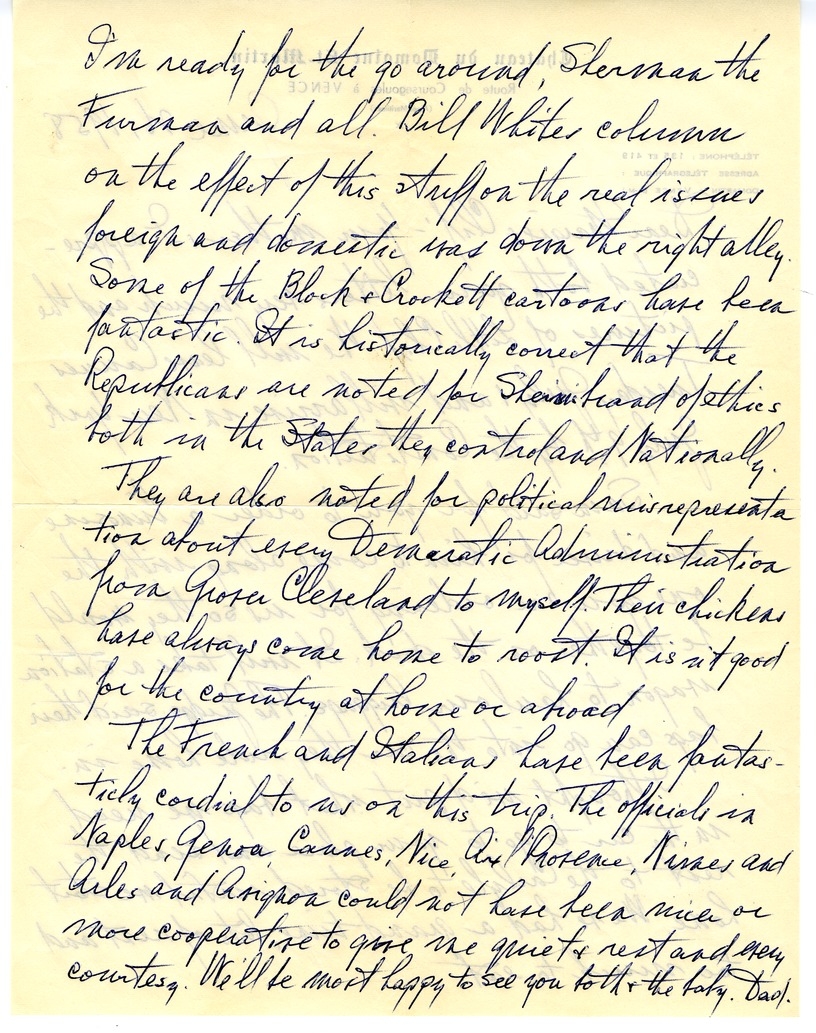 I'm ready for the go around, Sherman the
Furman and all. Bill Whites column
on the effect of this stuff on the real issues
foreign and domestic was down the right alley.
Some of the Block & Crockett cartoons have been
fantastic. It is historically correct that the
Republicans are noted for their brand of ethics
both in the States they control and Nationally.
They are also noted for political misrepresenta
tion about every Democratic Administration
from Grover Cleveland to myself. Their chickens
have always come home to roost. It is n't good
for the country at home or abroad
The French and Italians have been fantas-
ticly cordial to us on this trip. The officials in
Naples, Genoa, Cannes, Nice, Aix Provence, Nimes and
Arles and Avignon could not have been nicer or
more cooperative to give me quiet & rest and every
courtesy. We'll be most happy to see you both & the baby. Dad.